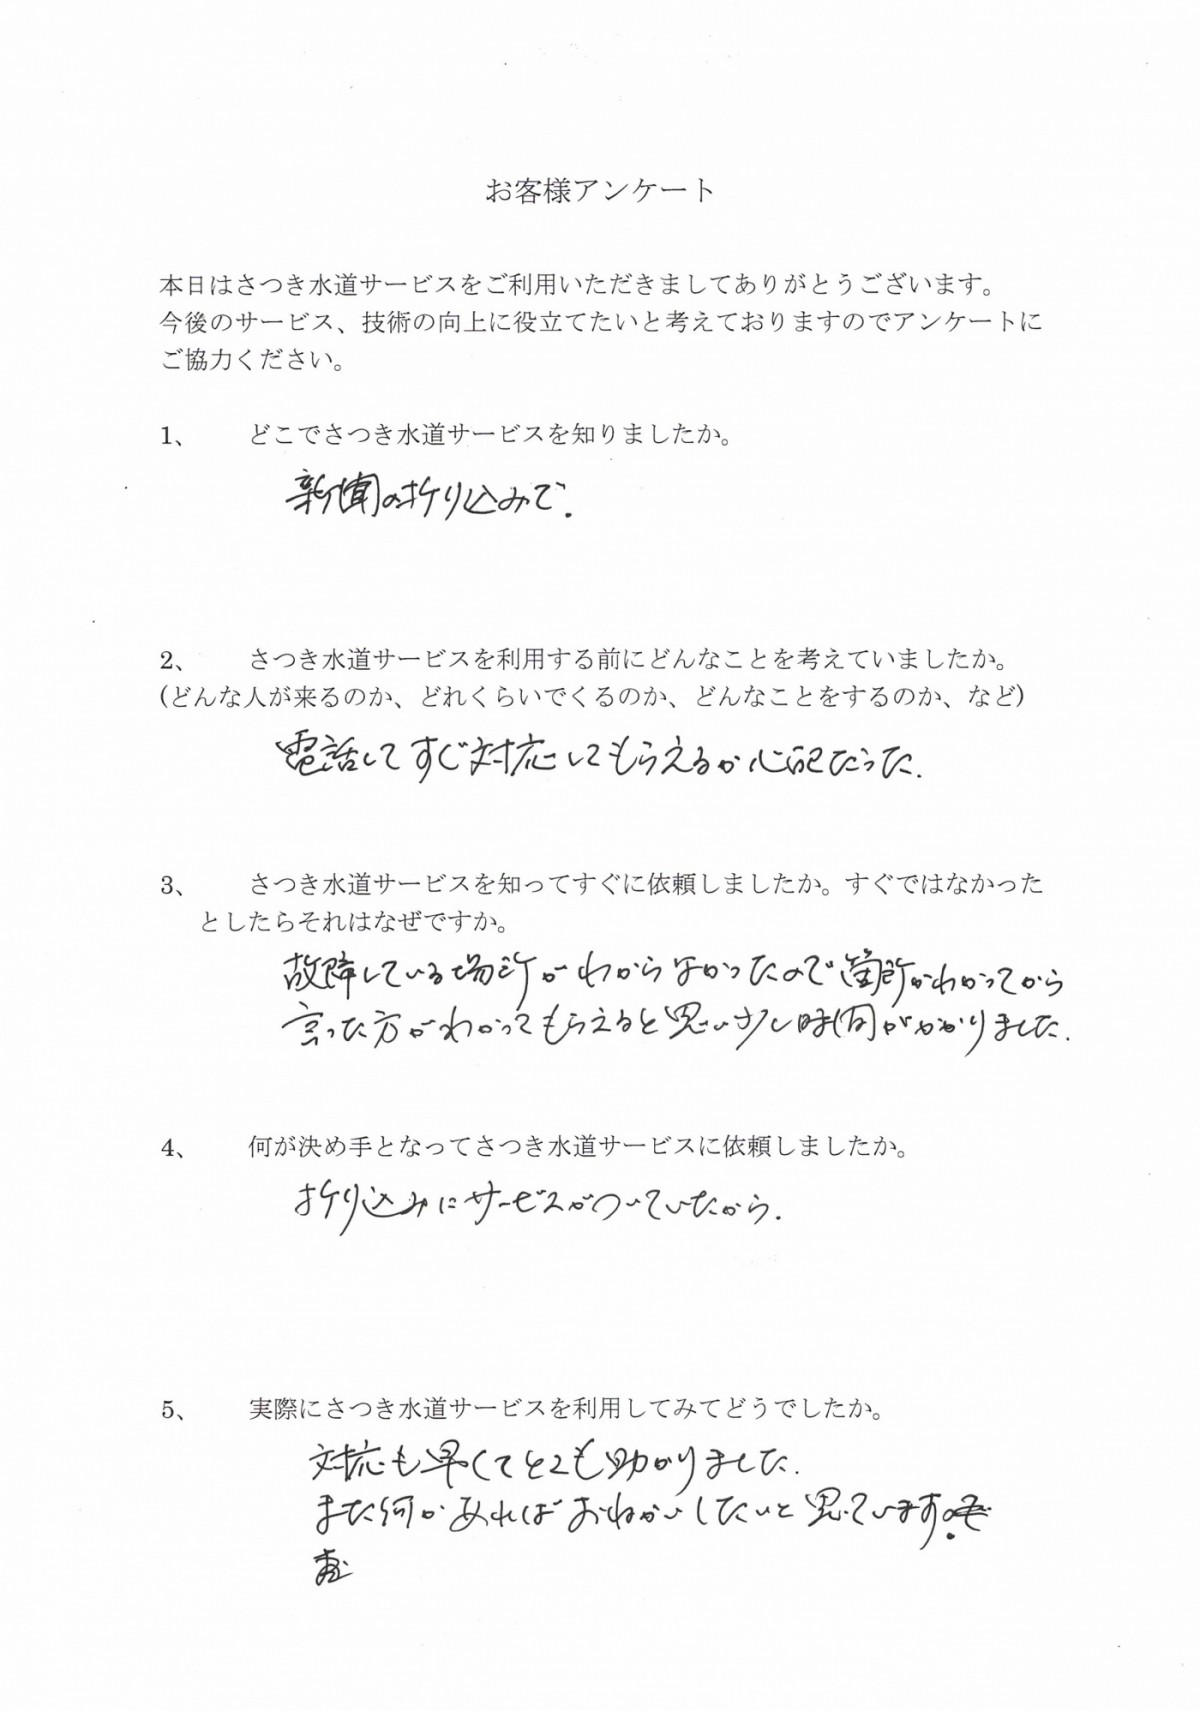 お客様アンケート
本日はさつき水道サービスをご利用いただきましてありがとうございます。
今後のサービス、技術の向上に役立てたいと考えておりますのでアンケートに
ご協力ください。
1、 どこでさつき水道サービスを知りましたか。
新聞の折り込みで.
2、 さつき水道サービスを利用する前にどんなことを考えていましたか。
(どんな人が来るのか、どれくらいでくるのか、どんなことをするのか、など)
電話してすぐ対応してもらえるか心配だった.
3、 さつき水道サービスを知ってすぐに依頼しましたか。すぐではなかった
としたらそれはなぜですか。
故障している場所がわからなかったので箇所がわかってから
言った方がわかってもらえると思い少し時間がかかりました.
4、 何が決め手となってさつき水道サービスに依頼しましたか。
折り込みにサービスがついていたから.
5、 実際にさつき水道サービスを利用してみてどうでしたか。
対応も早くてとても助かりました.
また何かあればおねがいしたいと思っています.